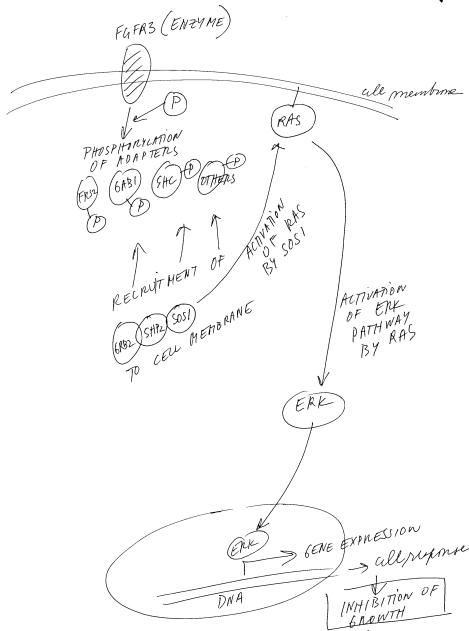 FGFR3 (ENZYME)
cell membrane
P
RAS
PHOSPHORYLATION
OF ADAPTERS
FRS2
P
GAB1
P
SHC
P
OTHERS
P
RECRUITMENT OF
GRB2
SHP2
SOS1
TO CELL MEMBRANE
ACTIVATION
OF RAS
BY SOS1
ACTIVATION
OF ERK
PATHWAY
BY RAS
ERK
ERK
GENE EXPRESSION
DNA
cell response
INHIBITION OF
GROWTH